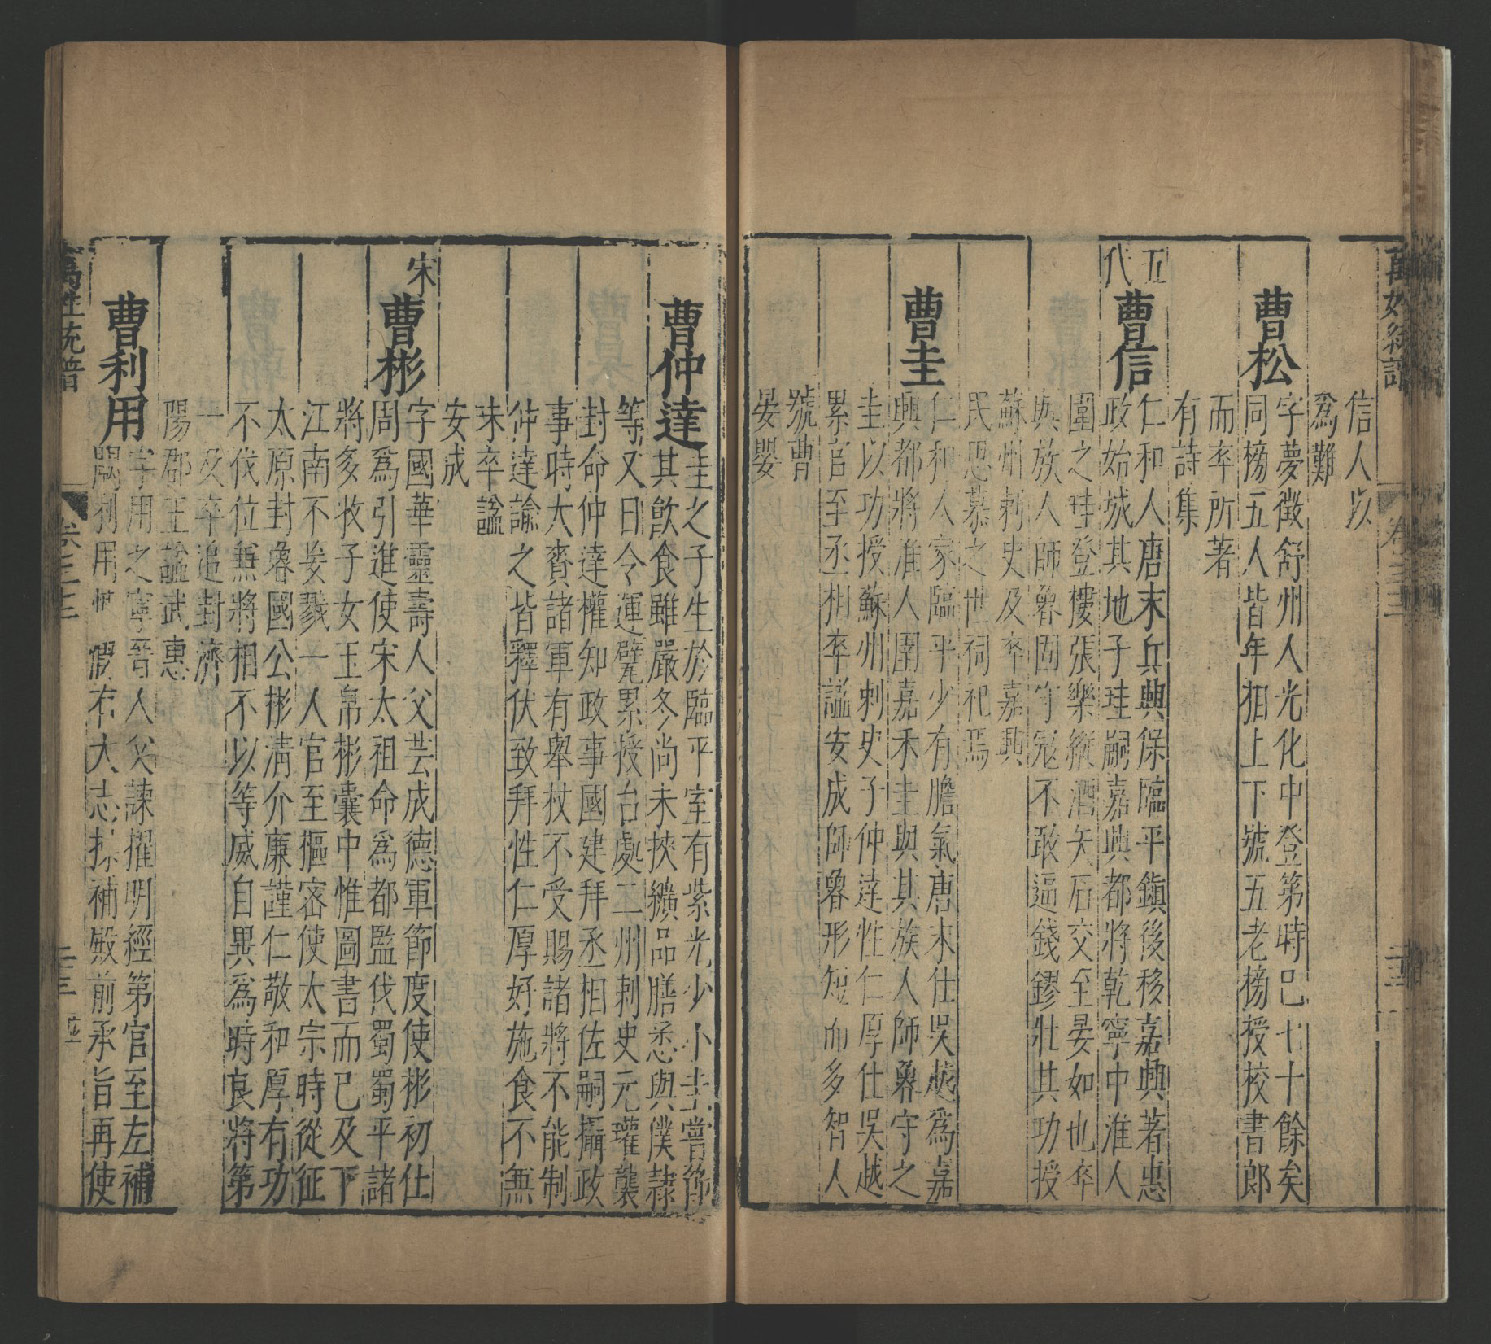 萬姓統譜
信人以
爲難
曹松
字夢徵舒州人光化中登第時已七十餘矣
同榜五人皆年相上下號五老榜授校書郎
而卒所著
有詩集
五代
曹信
仁和人唐末兵興保臨平鎮後移嘉興著惠
政始城其地子珪嗣嘉興都將乾寧中淮人
圍之珪登樓張樂縱酒矢石交至晏如也卒
與族人師魯固守冦不敢逼錢鏐壯其功授
蘇州刺史及卒嘉興
民思慕之世祠祀焉
曹圭
仁和人家臨平少有膽氣唐末仕吳越爲嘉
興都將淮人圍嘉禾圭與其族人師魯守之
圭以功授蘇州刺史子仲達性仁厚仕吳越
累官至丞相卒謚安成師魯形短而多智人
號曹
晏嬰
曹仲達
圭之子生於臨平室有紫光少小圭嘗節
其飲食雖嚴冬尚未挾纊品膳悉與僕隸
等又曰令運甓累授台處二州刺史元瓘襲
封命仲達權知政事國建拜丞相佐嗣攝政
事時大賚諸軍有舉杖不受賜諸將不能制
仲達諭之皆釋伏致拜性仁厚好施食不無
味卒謚
安成
宋
曹彬
字國華靈壽人父芸成德軍節度使彬初仕
周爲引進使宋太祖命爲都監伐蜀蜀平諸
將多收子女玉帛彬囊中惟圖書而已及下
江南不妄戮一人官至樞密使太宗時從征
太原封魯國公彬清介廉謹仁敬和厚有功
不伐位兼將相不以等威自異爲時良將第
一及卒追封濟
陽郡王謚武惠
曹利用
字用之寧晉人父諫擢明經第官至左補
闕利用 慨有大志 補殿前承旨再使
萬姓統譜